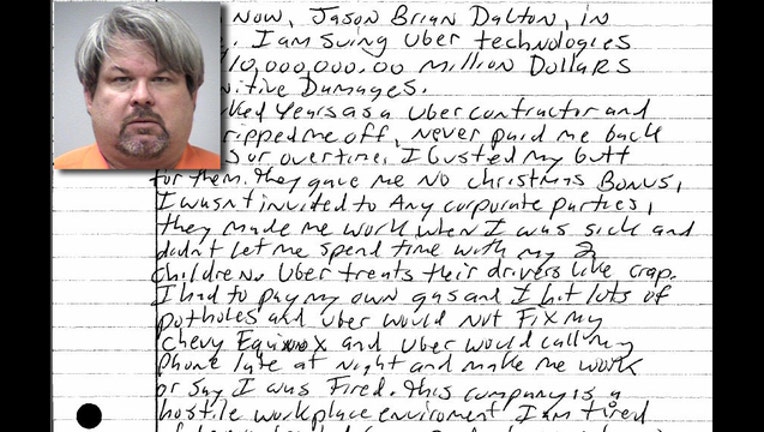 Now, Jason Brian Dalton, in
I am suing Uber technologies
10,000,000.00 million Dollars
Damages.
Years as a Uber contractor and
ripped me off, never paid me back
or overtime. I busted my butt
for them. they gave me No christmas BONUS,
I wasn't invited to Any corporate parties,
they made me work when I was sick and
didn't let me spend time with my 2
children. Uber treats their drivers like crap.
I had to pay my own gas and I hit lots of
potholes and Uber would Not Fix my
Chevy Equinox and Uber would call my
phone late at night and make me work
or say I was Fired. this company is a
hostile workplace enviroment I am tired